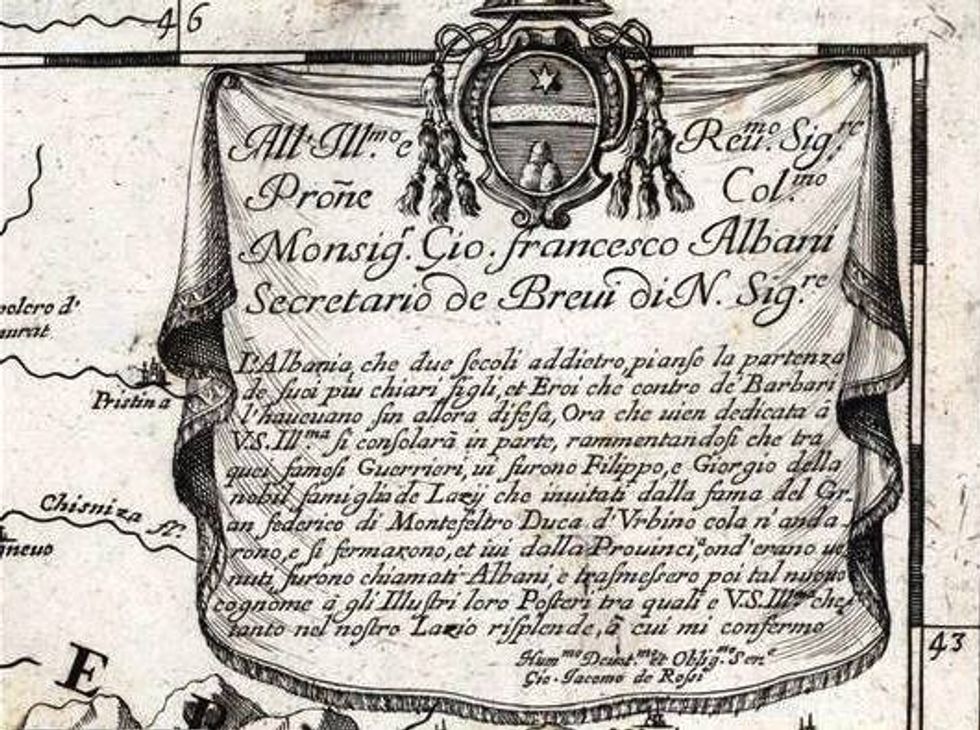 46
All'Ill.mo e Reu.mo Sig.re
Proñe Col.mo
Monsig.r Gio. francesco Albani
Secretario de Breui di N. Sig.re
L'Albania, che due secoli addietro, pianse la partenza
de suoi piu chiari figli, et Eroi che contro de' Barbari
l'haueuano sin allora difesa, Ora che uien dedicata â
V.S. Ill.ma si consolarà in parte, rammentandosi che tra
quei famosi Guerrieri, ui furono Filippo, e Giorgio della
nobil famiglia de Lazij che inuitati dalla fama del Gr-
an federico di Montefeltro Duca d'Vrbino cola n'anda-
rono, e si fermarono, et iui dalla Prouinci.a ond'erano ue
nuti furono chiamati Albani, e trasmessero poi tal nuouo
cognome â gli Illustri loro Posteri tra quali e V.S.Ill.ma che
tanto nel nostro Lazio risplende, â cui mi confermo
Hum.mo Deuot.mo et Oblig.mo Ser.e
Gio. Jacomo de Rossi
polero d'
murat
Pristina
Chisniza fl.
gneuo
E
43